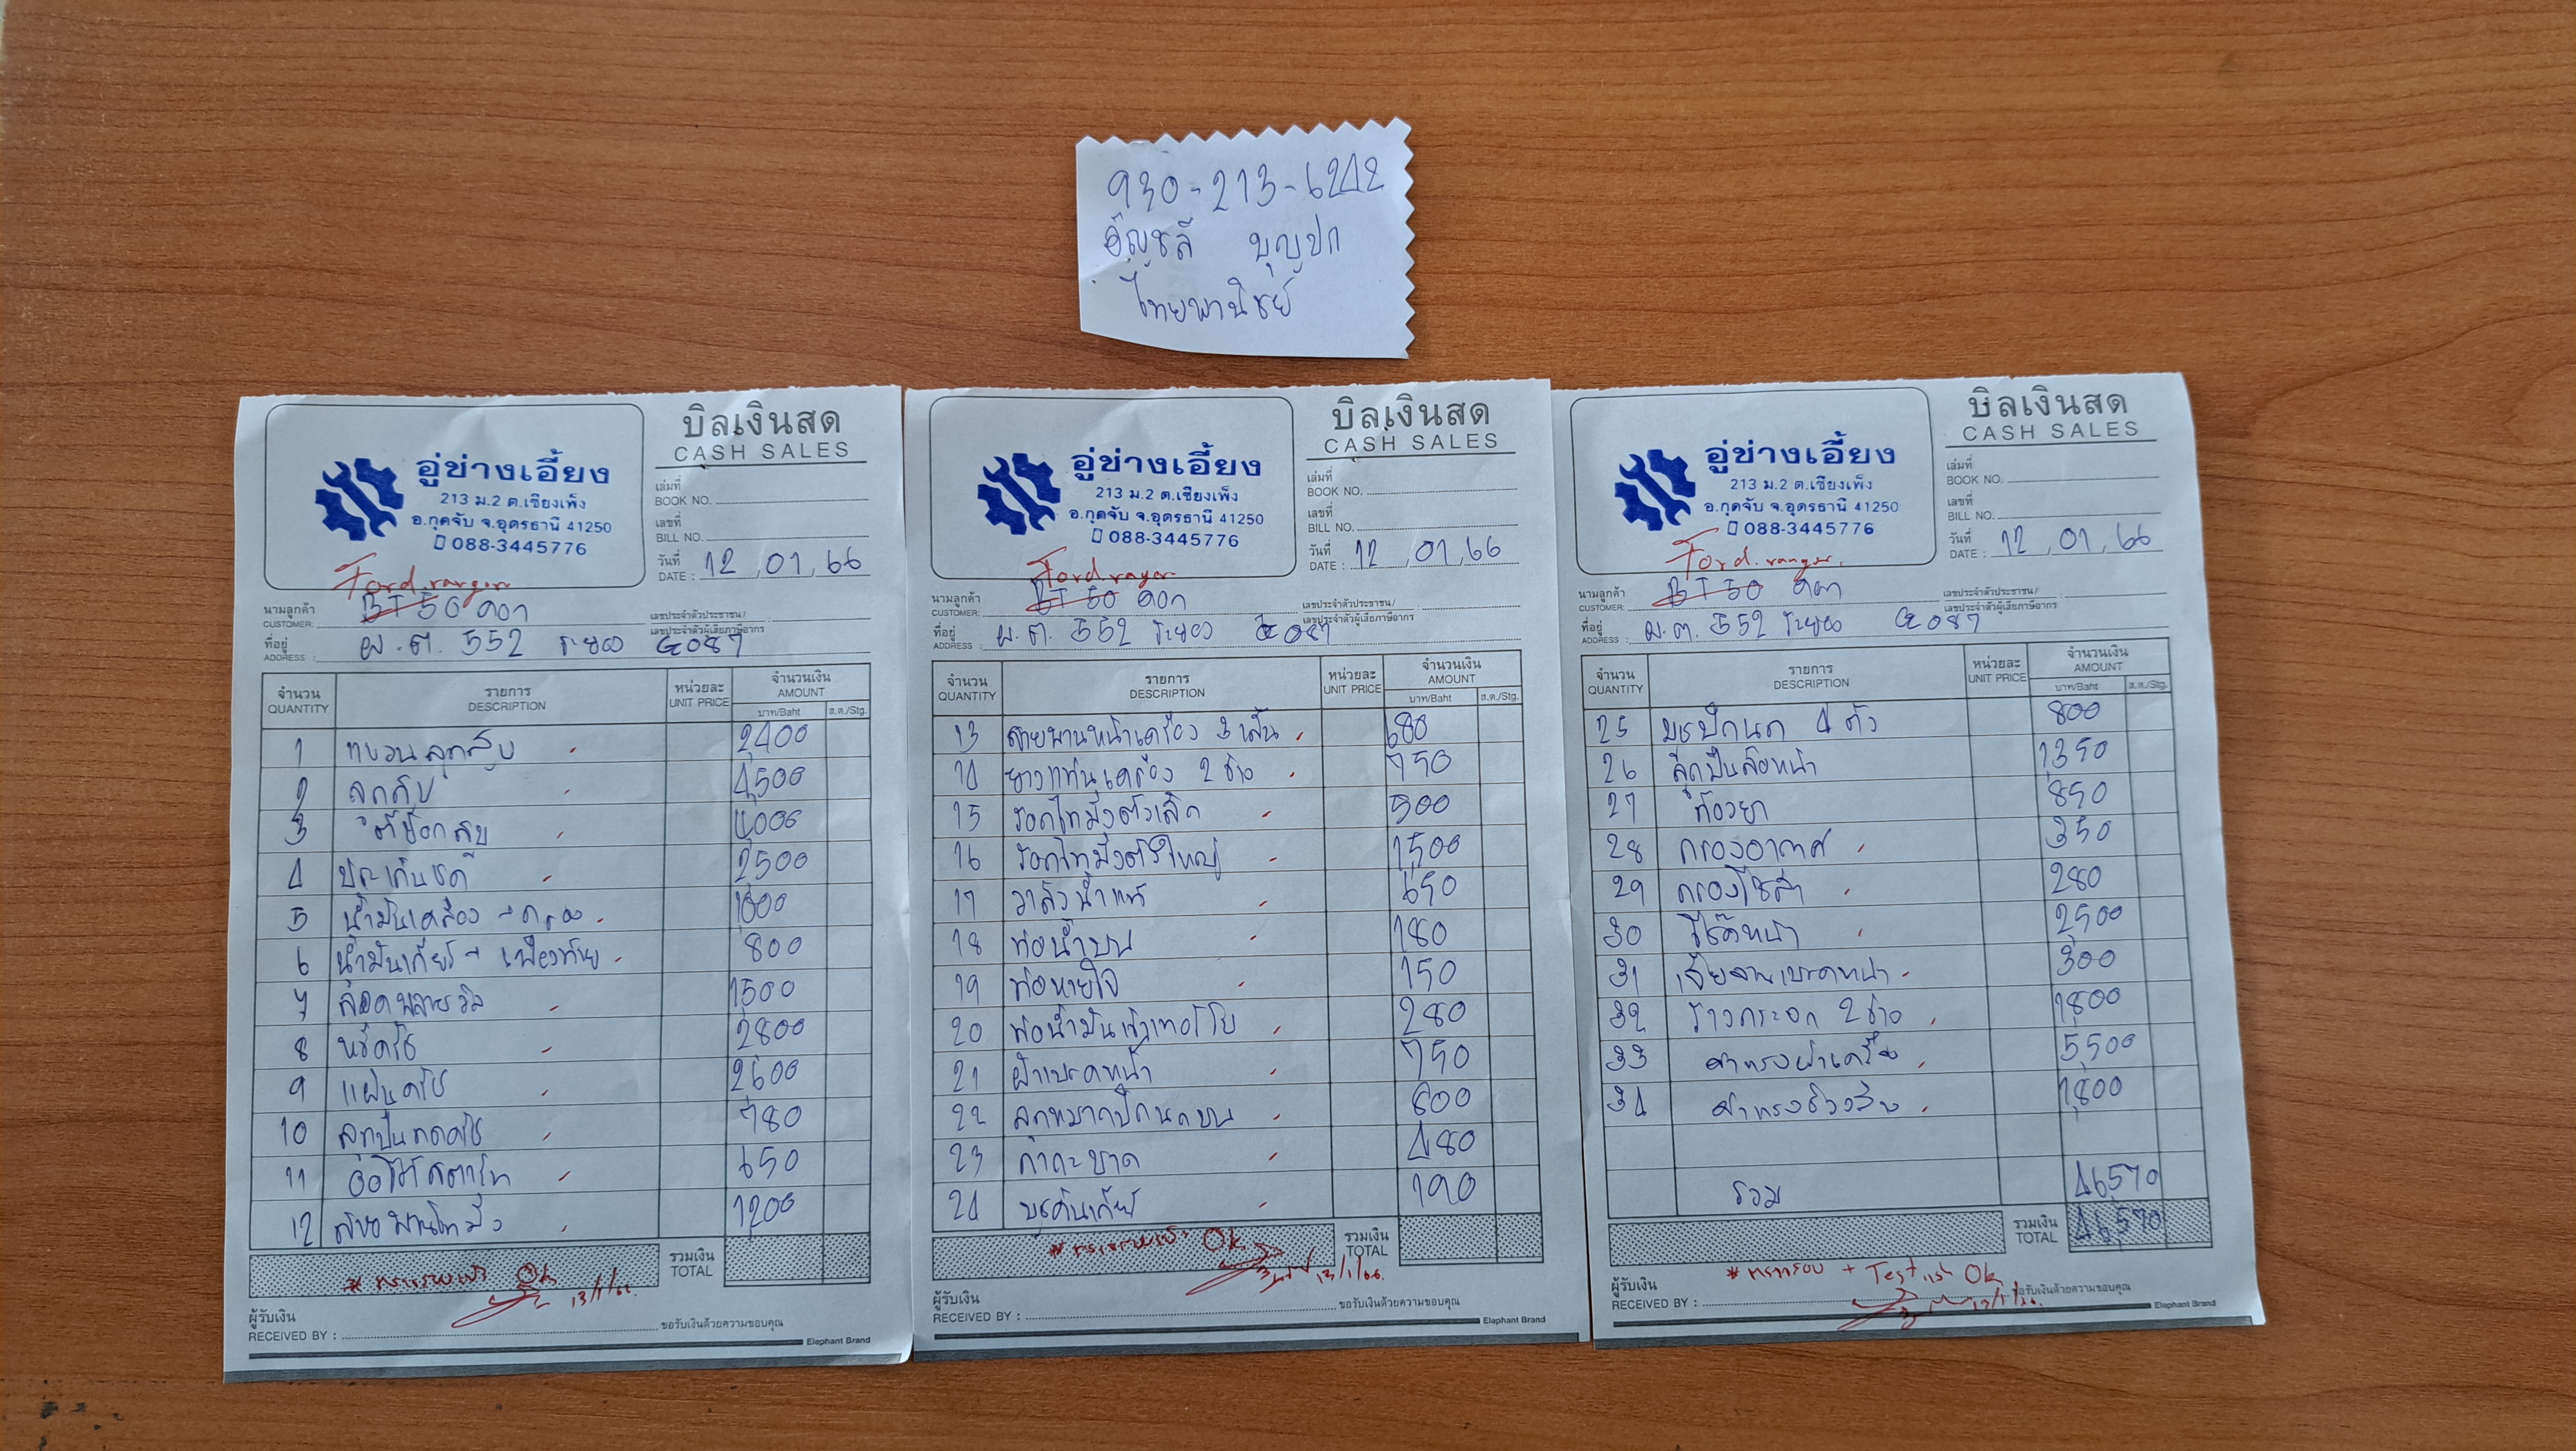 930-213-6242
อัญชลี บุญปก
ไทยพานิชย์
บิลเงินสด
CASH SALES
อู่ช่างเอี้ยง
213 ม.2 ต.เชียงเพ็ง
อ.กุดจับ จ.อุดรธานี 41250
088-3445776
เล่มที่
BOOK NO.
เลขที่
BILL NO.
วันที่
DATE : 12 , 01 , 66
Ford ranger
นามลูกค้า
CUSTOMER: BT 50
เลขประจำตัวประชาชน /
เลขประจำตัวผู้เสียภาษีอากร
ที่อยู่
ADDRESS : ผ.ต. 552 ระยอง
จำนวน รายการ หน่วยละ จำนวนเงิน
QUANTITY DESCRIPTION UNIT PRICE AMOUNT
บาท/Baht ส.ต./Stg.
1 แหวนลูกสูบ 2,400
2 ลูกสูบ 4,500
3 4,000
4 ประเก็นชุด 2,500
5 น้ำมันเครื่อง + กรอง 1,800
6 น้ำมันเกียร์ + เฟืองท้าย 800
7 1,500
8 หวีคลัช 2,800
9 แผ่นคลัช 2,600
10 ลูกปืนกดคลัช 780
11 650
12 สายพานไทมิ่ง 1,200
รวมเงิน
TOTAL
Ok
13/1/66
ผู้รับเงิน
RECEIVED BY : ขอรับเงินด้วยความขอบคุณ
Elephant Brand
บิลเงินสด
CASH SALES
อู่ช่างเอี้ยง
213 ม.2 ต.เชียงเพ็ง
อ.กุดจับ จ.อุดรธานี 41250
088-3445776
เล่มที่
BOOK NO.
เลขที่
BILL NO.
วันที่
DATE : 12 , 01 , 66
Ford ranger
นามลูกค้า
CUSTOMER: BT 50
เลขประจำตัวประชาชน /
เลขประจำตัวผู้เสียภาษีอากร
ที่อยู่
ADDRESS : ผ.ต. 552 ระยอง
จำนวน รายการ หน่วยละ จำนวนเงิน
QUANTITY DESCRIPTION UNIT PRICE AMOUNT
บาท/Baht ส.ต./Stg.
13 สายพานหน้าเครื่อง 3 เส้น 680
14 ยางแท่นเครื่อง 2 ข้าง 750
15 รอกไทมิ่งตัวเล็ก 500
16 รอกไทมิ่งตัวใหญ่ 1,500
17 วาล์วน้ำ 650
18 ท่อน้ำบน 180
19 ท่อหายใจ 150
20 ท่อน้ำมันเข้าเทอร์โบ 280
21 ผ้าเบรคหน้า 750
22 ลูกหมากปีกนกบน 800
23 480
24 บูชคันเกียร์ 190
รวมเงิน
TOTAL
Ok
13/1/66.
ผู้รับเงิน
RECEIVED BY : ขอรับเงินด้วยความขอบคุณ
Elephant Brand
บิลเงินสด
CASH SALES
อู่ช่างเอี้ยง
213 ม.2 ต.เชียงเพ็ง
อ.กุดจับ จ.อุดรธานี 41250
088-3445776
เล่มที่
BOOK NO.
เลขที่
BILL NO.
วันที่
DATE : 12 , 01 , 66
Ford ranger.
นามลูกค้า
CUSTOMER: BT 50
เลขประจำตัวประชาชน /
เลขประจำตัวผู้เสียภาษีอากร
ที่อยู่
ADDRESS : ผ.ต. 552 ระยอง
จำนวน รายการ หน่วยละ จำนวนเงิน
QUANTITY DESCRIPTION UNIT PRICE AMOUNT
บาท/Baht ส.ต./Stg.
25 บูชปีกนก 4 ตัว 800
26 ลูกปืนล้อหน้า 1,350
27 850
28 กรองอากาศ 350
29 กรองโซล่า 280
30 โช๊คหน้า 2,500
31 เจียจานเบรคหน้า 300
32 1,800
33 5,500
34 ค่าแรงช่วงล่าง 1,800
รวม 46,570
รวมเงิน
TOTAL 46,570
+ Test Ok
ผู้รับเงิน
RECEIVED BY : ขอรับเงินด้วยความขอบคุณ
Elephant Brand